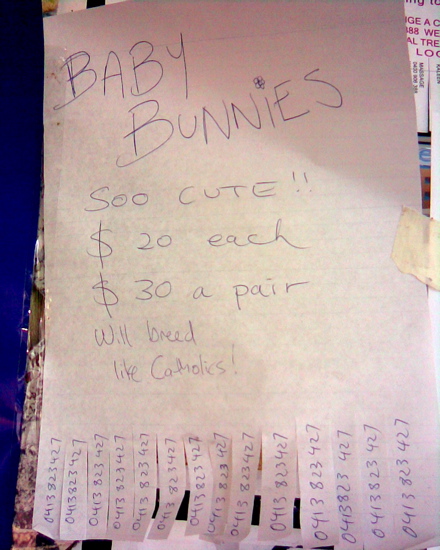 BABY
BUNNIES
SOO CUTE!!
$ 20 each
$ 30 a pair
Will breed
like Catholics!
0413 823 427
0413 823 427
0413 823 427
0413 823 427
0413 823 427
0413 823 427
0413 823 427
0413 823 427
0413 823 427
0413 823 427
0413 823 427
0413 823 427
0413 823 427
0413 823 427